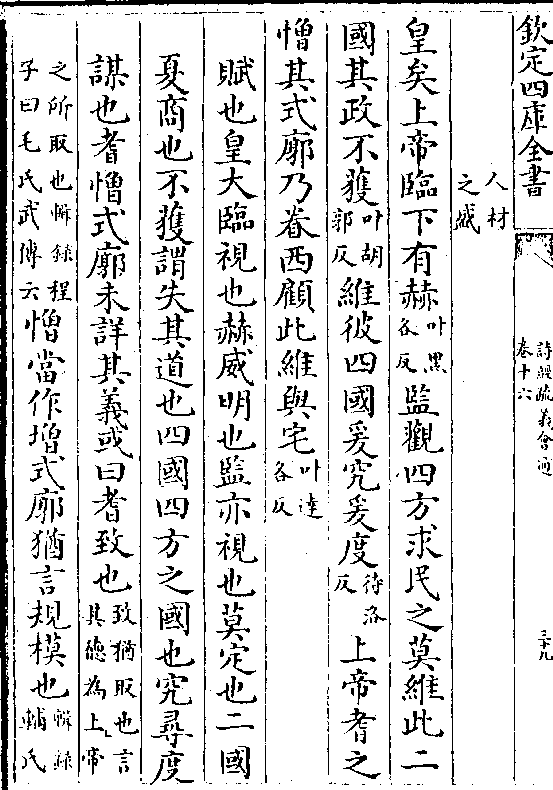 欽定四庫全書
詩經疏義會通
卷十六
三十九
人材
之盛
皇矣上帝臨下有赫叶黑各反監觀四方求民之莫維此二
國其政不獲叶胡郭反維彼四國爰究爰度待洛反上帝耆之
憎其式廓乃眷西顧此維與宅叶達各反
賦也皇大臨視也赫威明也監亦視也莫定也二國
夏商也不獲謂失其道也四國四方之國也究尋度
謀也耆憎式廓未詳其義或曰耆致也致猶取也言其德為上帝
之所取也輯録程子曰毛氏武傳云憎當作增式廓猶言規模也輯録輔氏